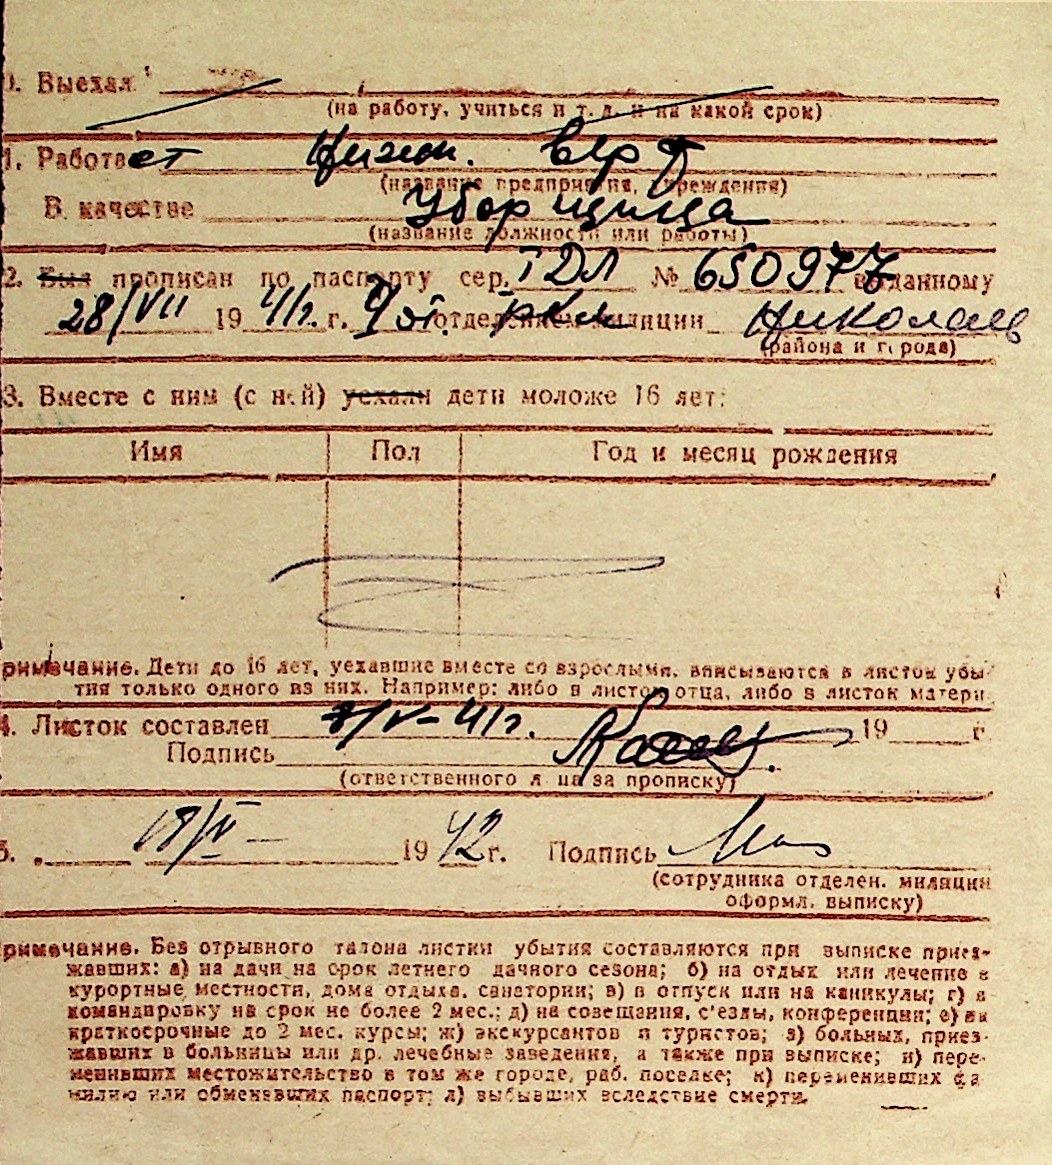 0. Выехал
(на работу, учиться и т. д. и на какой срок)
1. Работает
(название предприятия, учреждения)
В качестве Уборщица
(название должности или работы)
2. Был прописан по паспорту сер. ТДЛ № 650977 выданному
28/VII 19 41 г. г. 9 от. отделением милиции Николаев
(района и города)
3. Вместе с ним (с ней) уехали дети моложе 16 лет:
Имя Пол Год и месяц рождения
римечание. Дети до 16 лет, уехавшие вместе со взрослыми, вписываются в листок убы-
тия только одного из них. Например: либо в листок отца, либо в листок матери
4. Листок составлен /V-41г. 19 г
Подпись
(ответственного лица за прописку)
5. 19 42 г. Подпись
(сотрудника отделен. милиции
оформл. выписку)
римечание. Без отрывного талона листки убытия составляются при выписке приез-
жавших: а) на дачи на срок летнего дачного сезона; б) на отдых или лечение в
курортные местности, дома отдыха, санатории; в) в отпуск или на каникулы; г) в
командировку на срок не более 2 мес.; д) на совещания, с'езды, конференции; е) на
краткосрочные до 2 мес. курсы; ж) экскурсантов и туристов; з) больных, приез-
жавших в больницы или др. лечебные заведения, а также при выписке; и) пере-
менивших местожительство в том же городе, раб. поселке; к) переменивших фа
милию или обменявших паспорт; л) выбывших вследствие смерти.